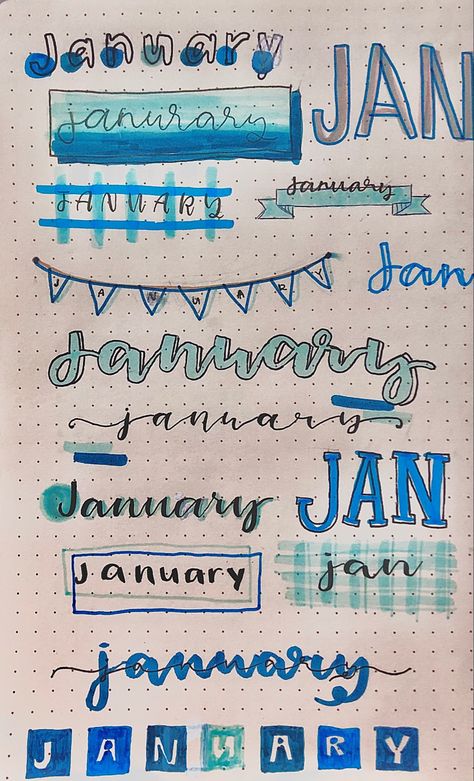 January
JAN
janurary
JANUARY
january
JANUARY
Jan
January
january
January
JAN
January
jan
january
JANUARY